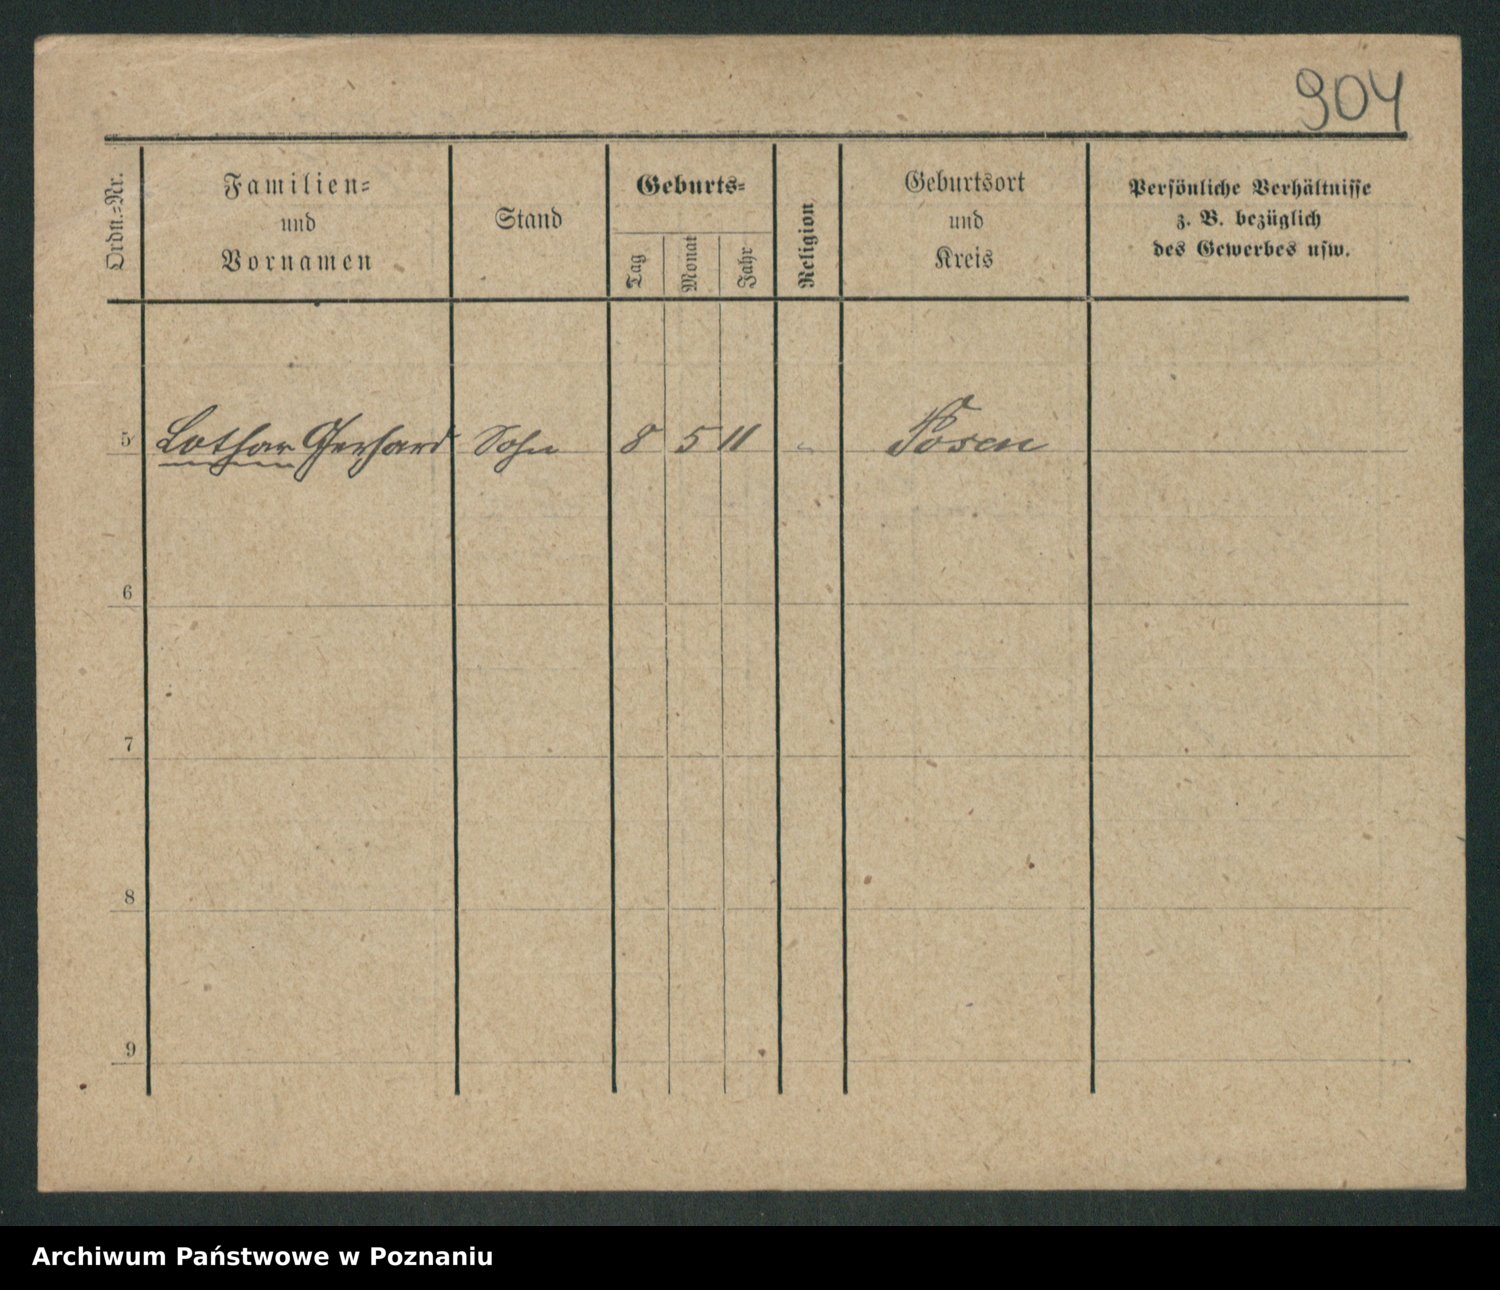 904
Ordn.-Nr.
Familien-
und
Vornamen
Stand
Geburts-
Tag
Monat
Jahr
Religion
Geburtsort
und
Kreis
Persönliche Verhältnisse
z. B. bezüglich
des Gewerbes usw.
5 Lothar Gerhard Sohn 8 5 11 " Posen
6
7
8
9
Archiwum Państwowe w Poznaniu